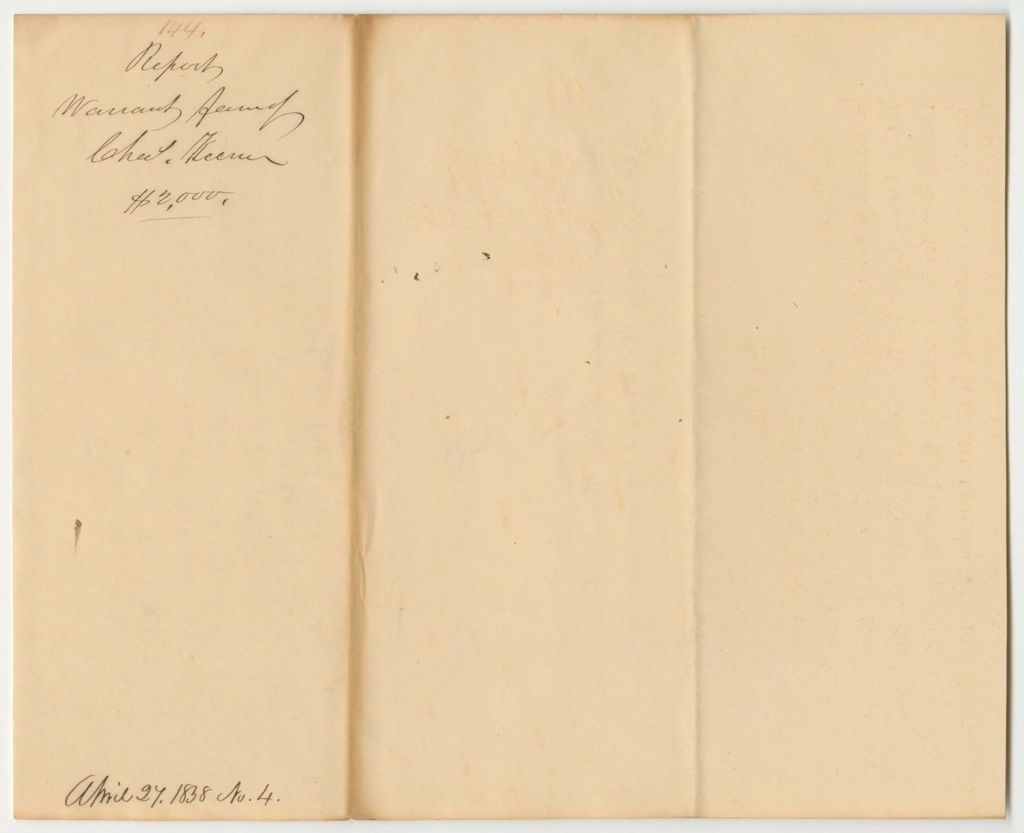 144.
Report
Warrant favr of
Chas. Keener
$2,000.
April 27. 1838 No. 4.